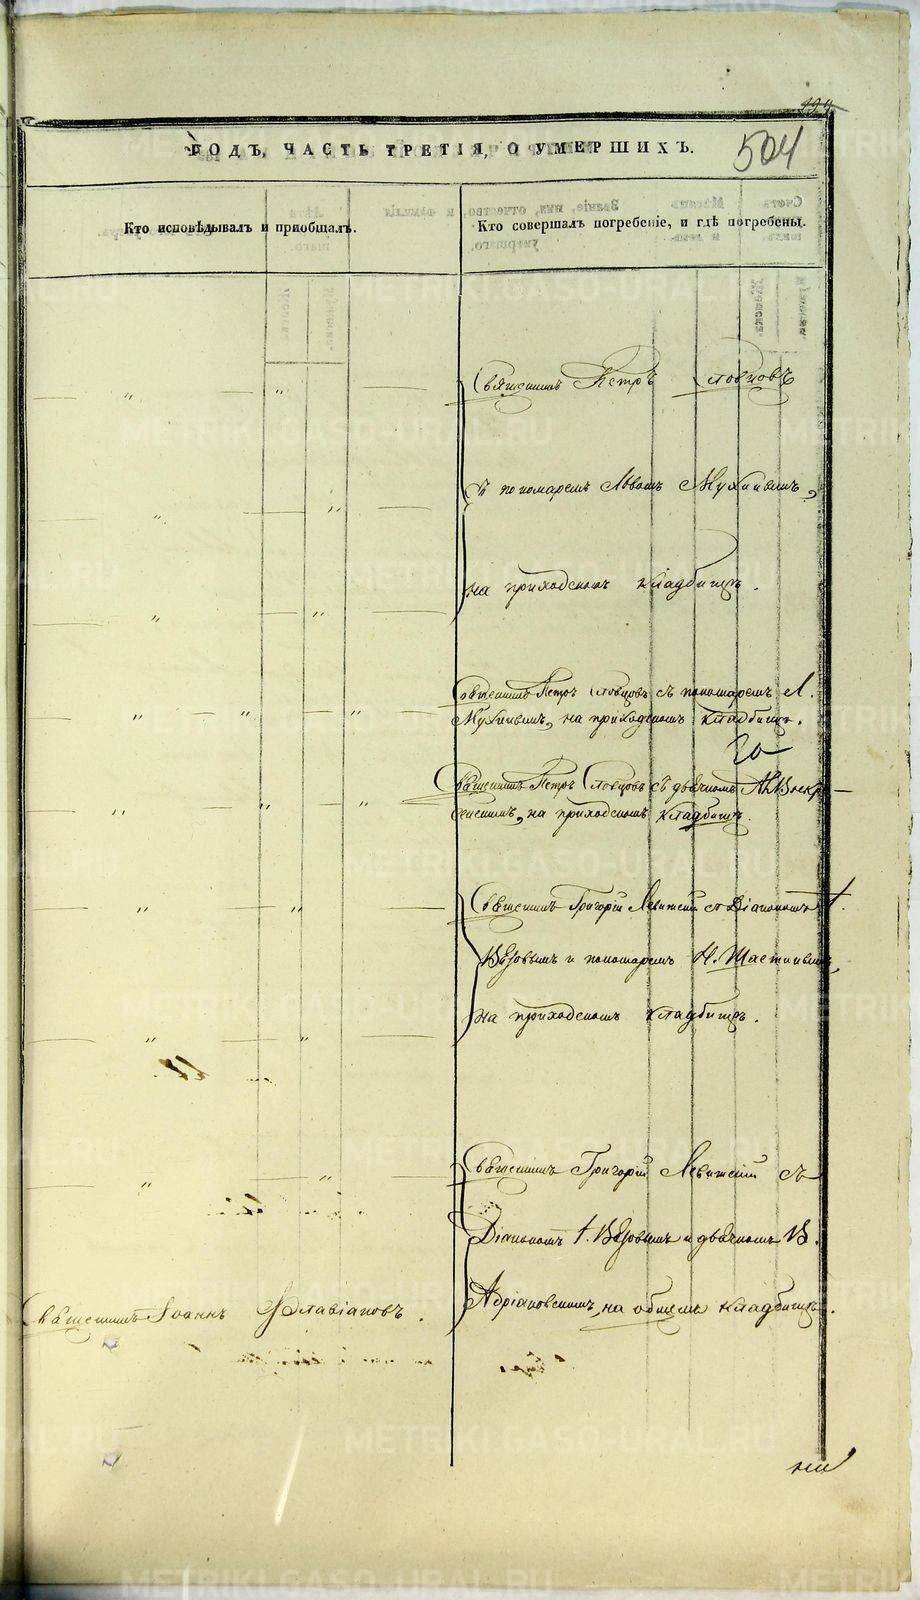 504
ГОДЪ, ЧАСТЬ ТРЕТІЯ, О УМЕРШИХЪ.
Кто исповѣдывалъ и приобщалъ.
Кто совершалъ погребеніе, и гдѣ погребены.
Священникъ Петръ Словцовъ
съ пономаремъ Львомъ Мухинымъ,
на приходскомъ кладбищѣ.
Священникъ Петръ Словцовъ съ пономаремъ Л.
Мухинымъ, на приходскомъ кладбищѣ.
Священникъ Петръ Словцовъ съ дьячкомъ Воскре-
сенскимъ, на приходскомъ кладбищѣ.
Священникъ Григорій Левитскій съ Діакономъ І.
и пономаремъ Н.
на приходскомъ кладбищѣ.
Священникъ Григорій Левитскій съ
Діакономъ І. и дьячкомъ В.
Адріановскимъ, на общемъ кладбищѣ.
Священникъ Іоаннъ Флавіановъ.
METRIKI.GASO-URAL.RU